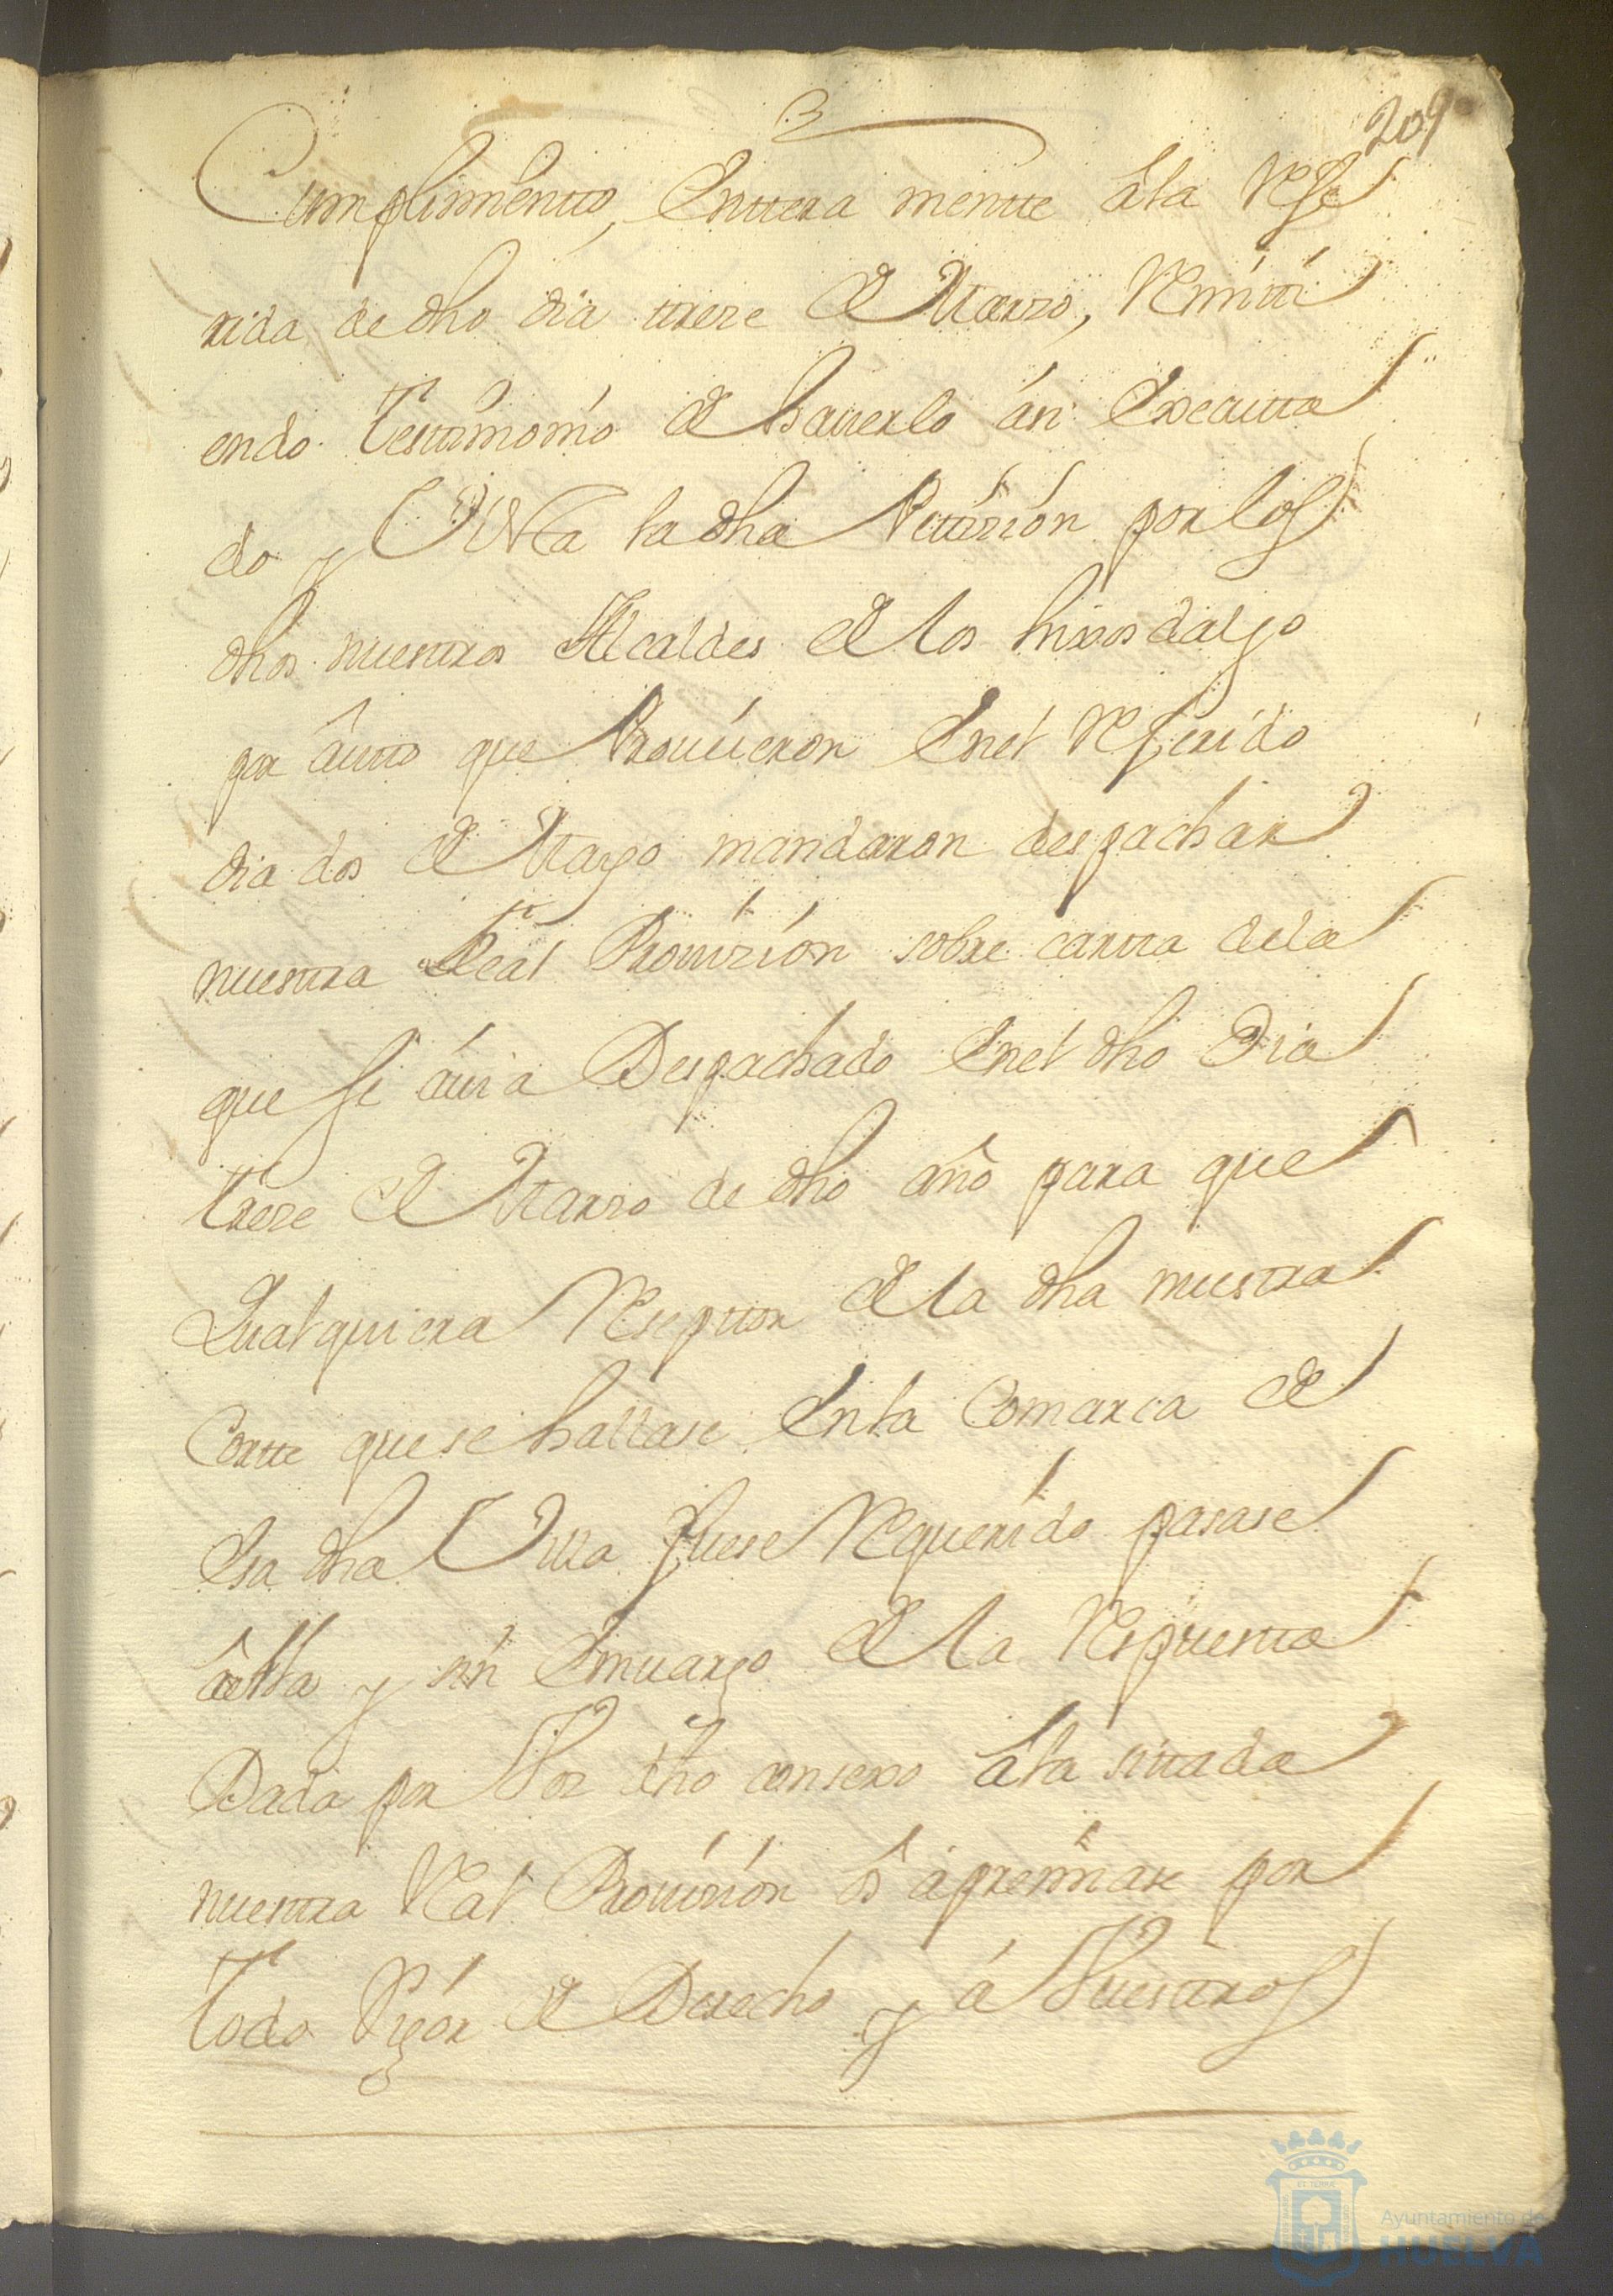 209
Cumplimentto, Enttera mentte â la Refe
rida de dho dia treze de Marzo, Remiti
endo testtimonio de hauerlo ási Executta
do y Vista la dha Petizión por los
dhos nuestros Alcaldes de los hixosdalgo
por âutto que Prouieron Enel Referido
dia dos de Mayo mandaron despachar
nuestra Real Prouizión sobre cartta dela
que se áuia Despachado Enel dho Dia
treze de Marzo de dho año para que
Qualquiera Reseptor de la dha nuestra
Cortte que se hallase En la Comarca de
Esa dha Villa fuese Requerido pasase
â ella y sin Emuargo de la Respuesta
Dada por Vos dho consexo â la sitada
nuestra Real Prouisión ôs ápremiase por
todo Rigór de Derecho y á Vuestros
Ayuntamiento de
HUELVA